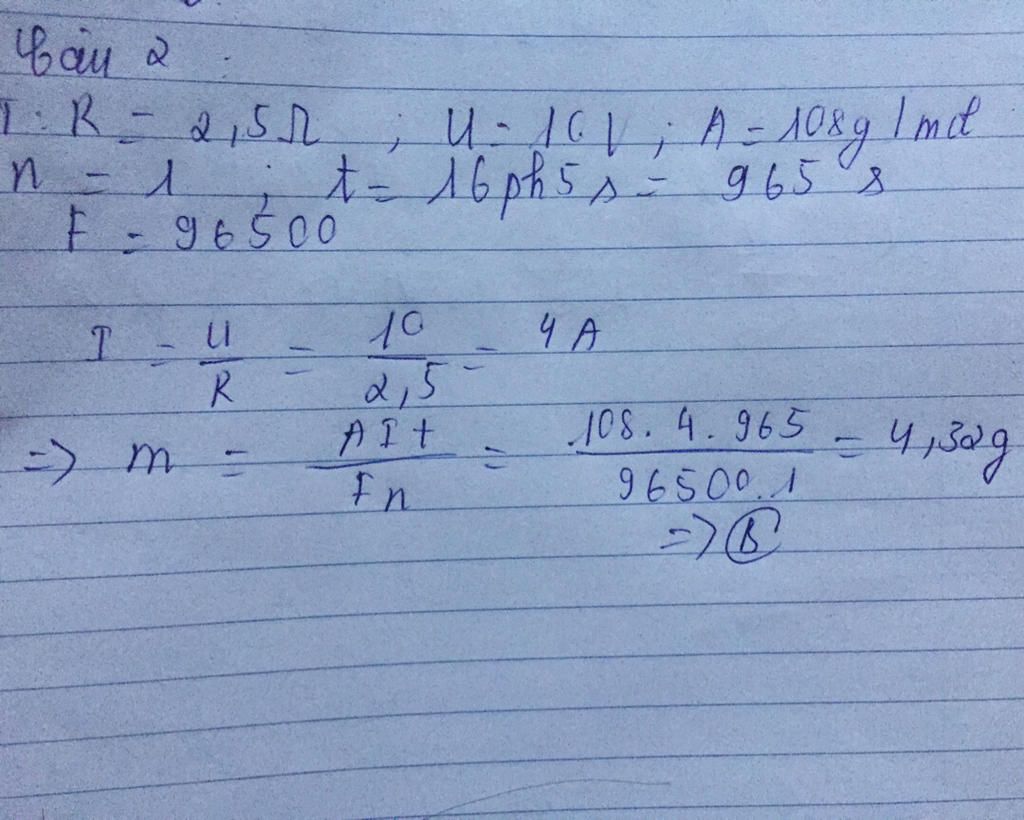 Câu 2 :
T : R = 2,5Ω ; U = 10V ; A = 108g/mol
n = 1 ; t = 16ph5s = 965 s
F = 96500
I = U/R = 10/2,5 = 4A
=> m = AIt/Fn = 108.4.965/96500.1 = 4,32g
=> B